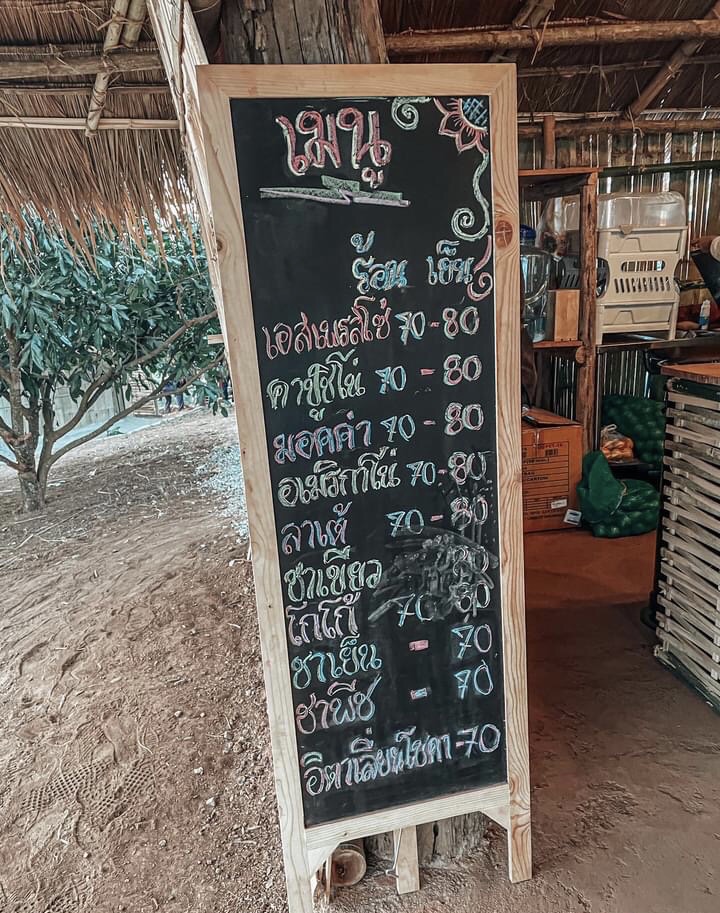 เมนู
ร้อน เย็น
เอสเพรสโซ่ 70 - 80
คาปูชิโน่ 70 - 80
มอคค่า 70 - 80
อเมริกาโน่ 70 - 80
ลาเต้ 70 - 80
ชาเขียว 80
โกโก้ 70 80
ชาเย็น - 70
ชาพีช - 70
อิตาเลี่ยนโซดา - 70